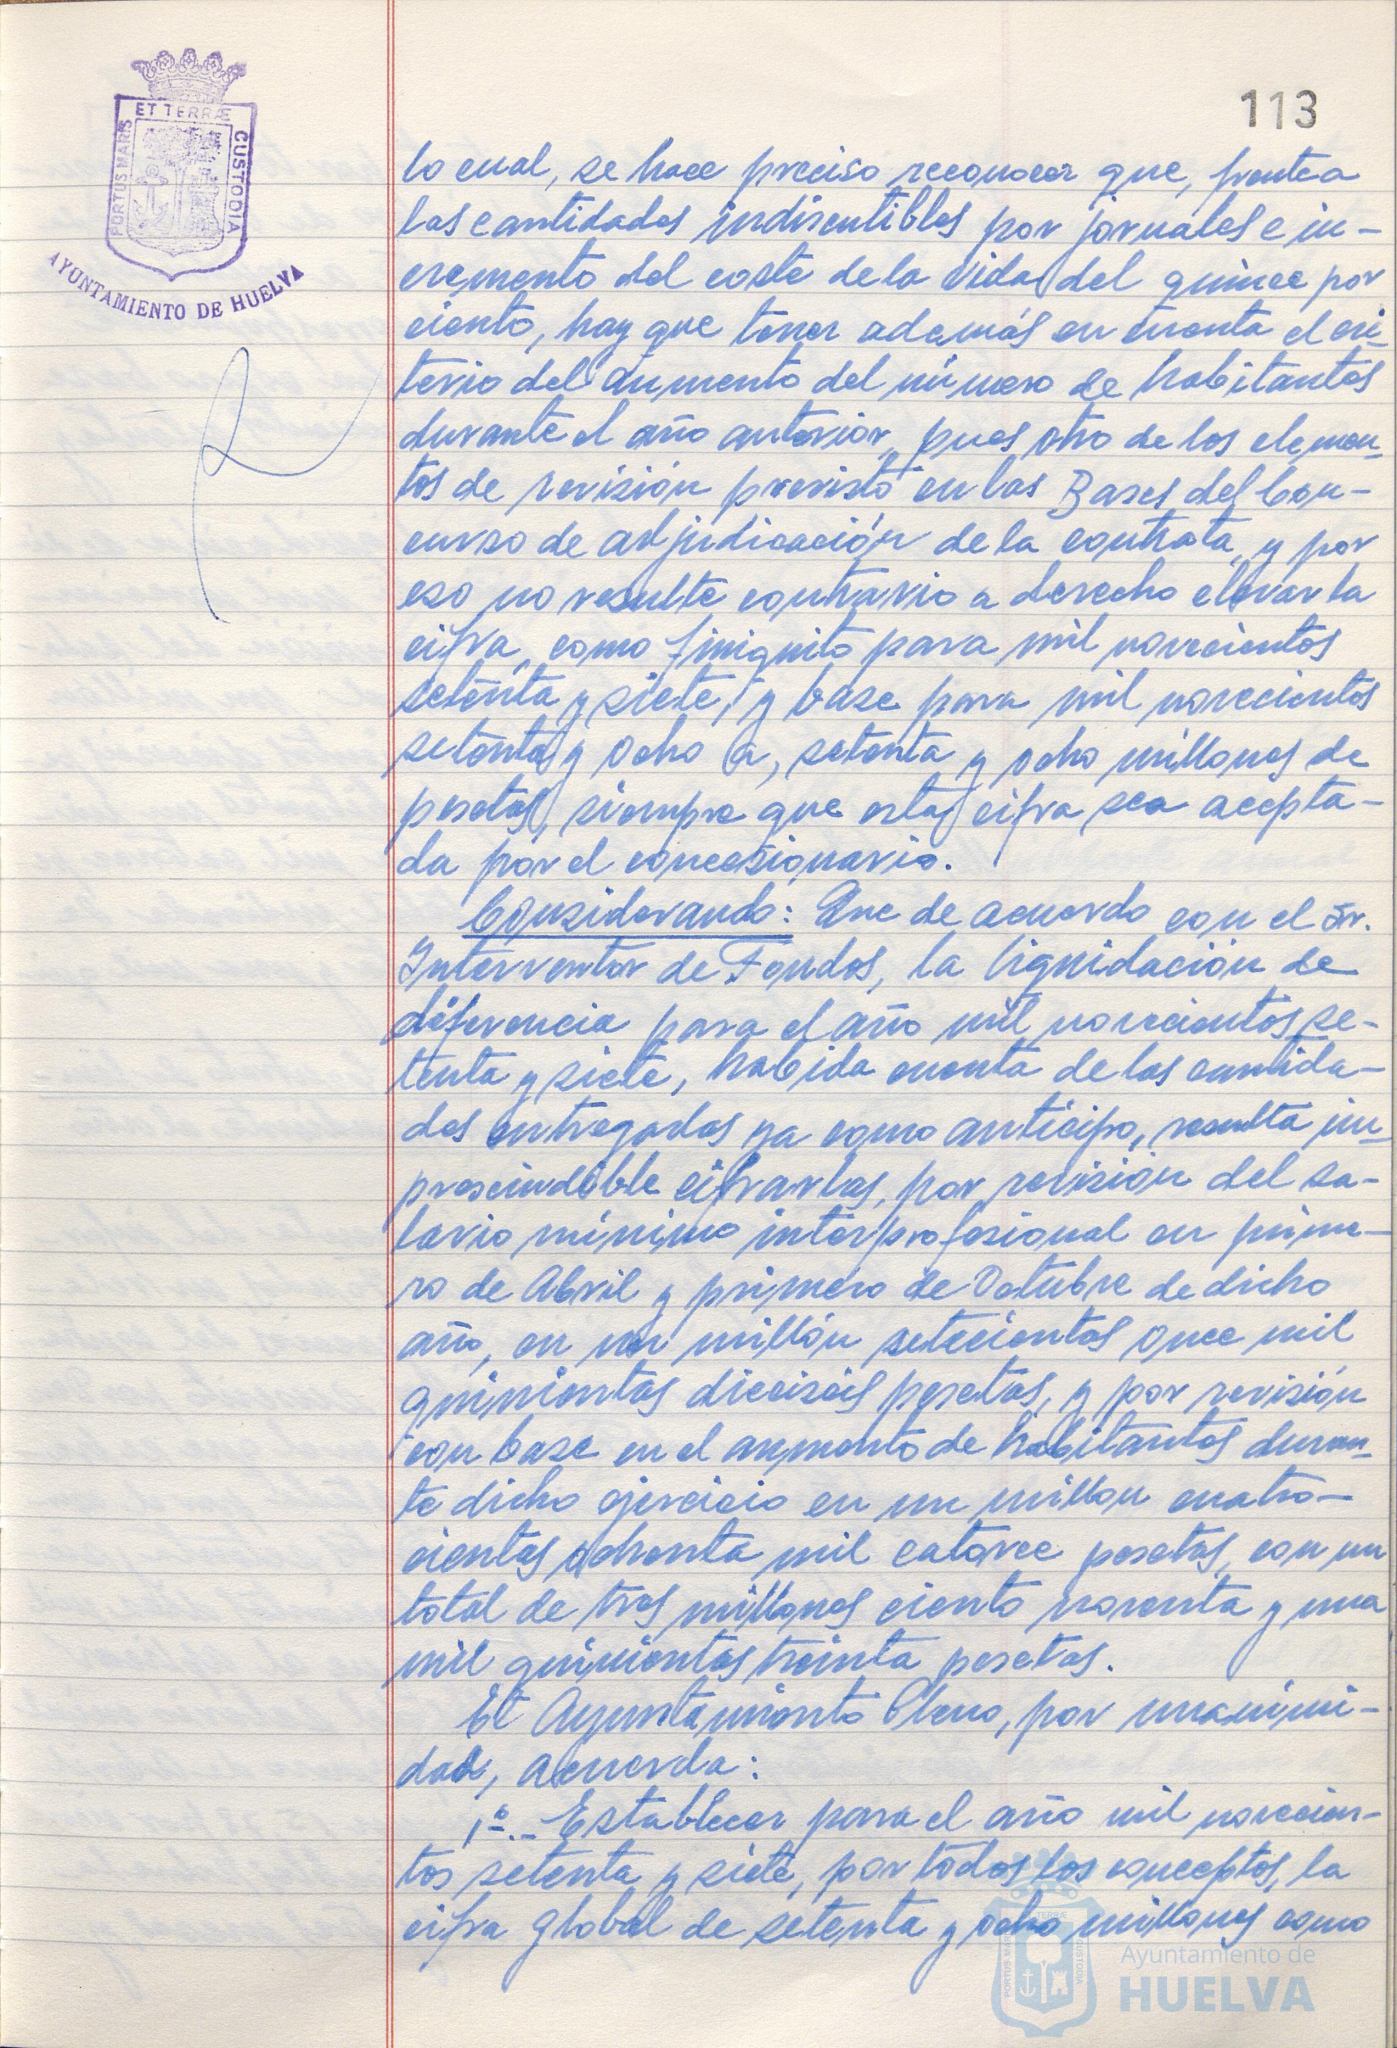 113
ET TERRÆ
PORTUS MARIS
CUSTODIA
AYUNTAMIENTO DE HUELVA
lo cual, se hace preciso reconocer que, frente a
las cantidades indiscutibles por jornales e in-
cremento del coste de la vida del quince por
ciento, hay que tener además en cuenta el cri-
terio del aumento del número de habitantes
durante el año anterior, pues otro de los elemen-
tos de revisión previsto en las Bases del Con-
curso de adjudicación de la contrata, y por
eso no resulte contrario a derecho elevar la
cifra, como finiquito para mil novecientos
setenta y siete, y base para mil novecientos
setenta y ocho a, setenta y ocho millones de
pesetas, siempre que esta cifra sea acepta-
da por el concesionario.
Considerando: Que de acuerdo con el Sr.
Interventor de Fondos, la liquidación de
diferencia para el año mil novecientos se-
tenta y siete, habida cuenta de las cantida-
des entregadas ya como anticipo, resulta im-
prescindible cifrarlas, por revisión del sa-
lario mínimo interprofesional en prime-
ro de Abril y primero de Octubre de dicho
año, en un millón setecientas once mil
quinientas dieciséis pesetas, y por revisión
con base en el aumento de habitantes duran-
te dicho ejercicio en un millon cuatro-
cientas ochenta mil catorce pesetas, con un
total de tres millones ciento noventa y una
mil quinientas treinta pesetas.
El Ayuntamiento Pleno, por unanimi-
dad, acuerda:
1º.- Establecer para el año mil novecien-
tos setenta y siete, por todos los conceptos, la
cifra global de setenta y ocho millones como
Ayuntamiento de
HUELVA